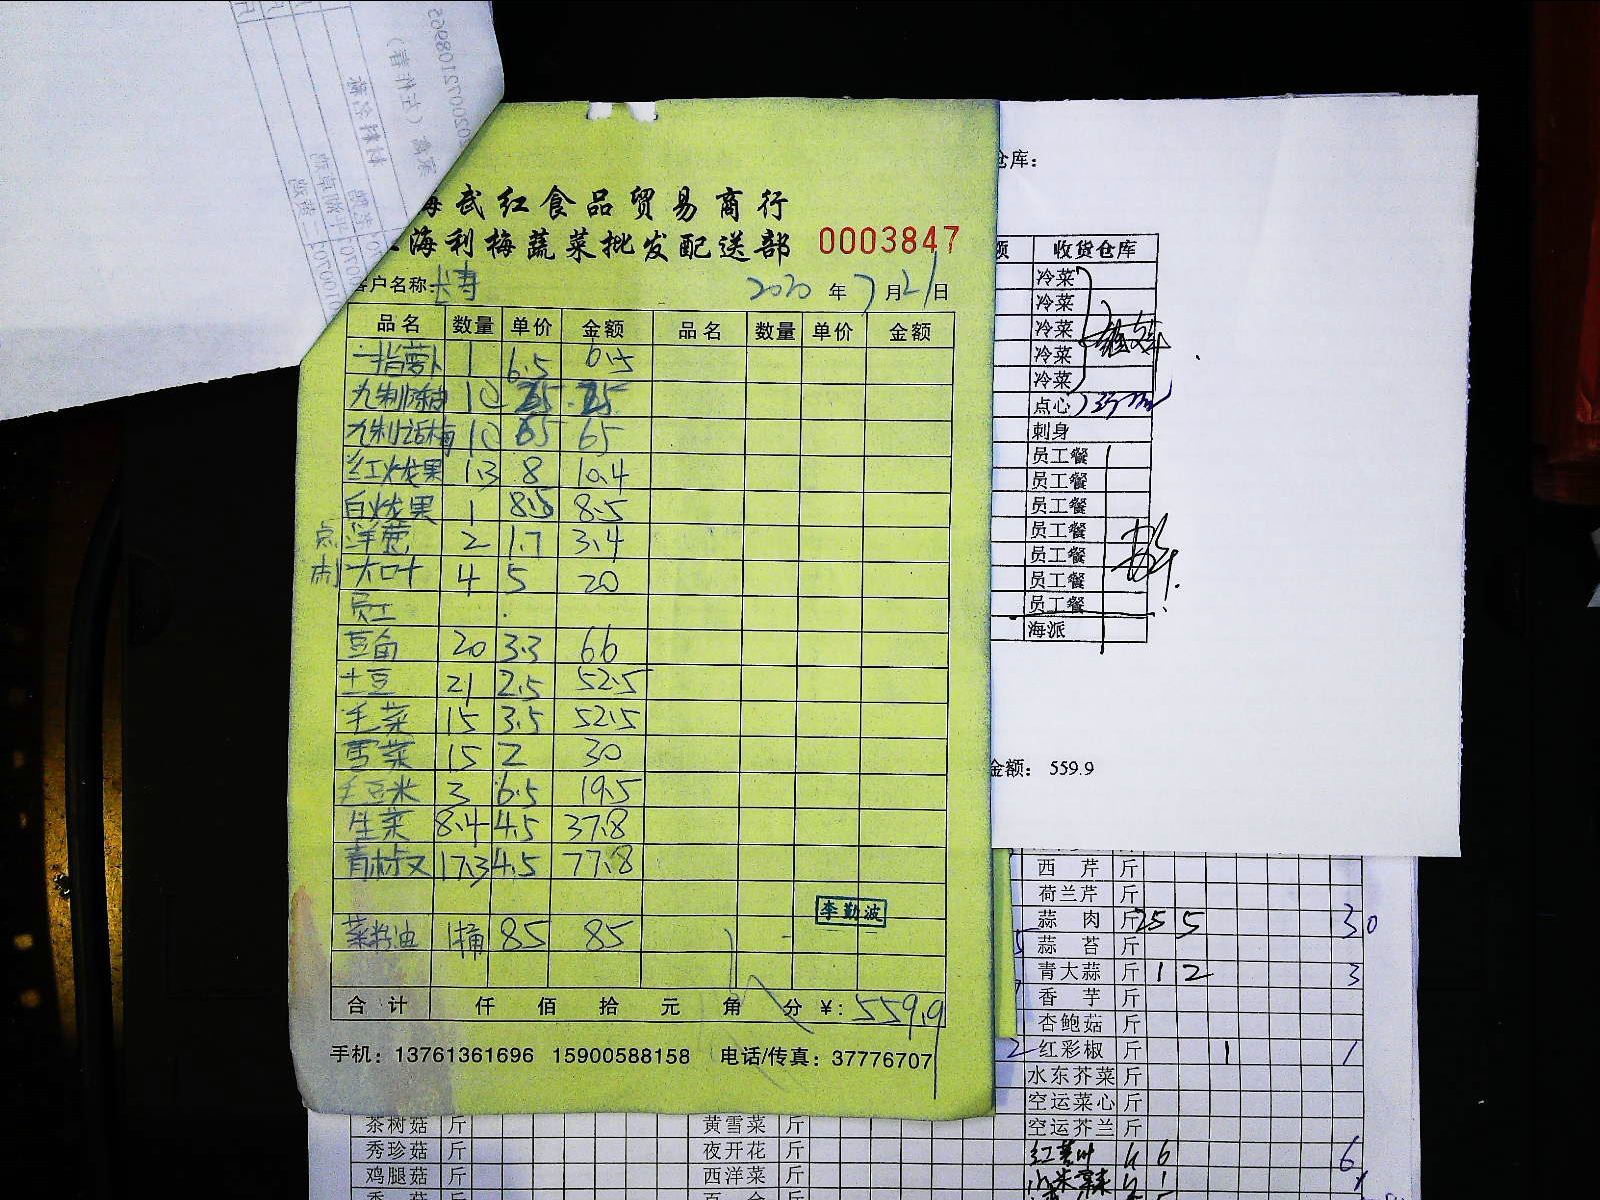 海武红食品贸易商行
海利梅蔬菜批发配送部 0003847
客户名称 长寿 2020 年 7 月 21 日
品名 数量 单价 金额 品名 数量 单价 金额
一指萝卜 1 6.5 6.5
九制陈皮 1包 25 25
九制话梅 1包 65 65
红火龙果 1.3 8 10.4
白火龙果 1 8.5 8.5
洋葱 2 1.7 3.4
大口叶 4 5 20
员工
豆角 20 3.3 66
土豆 21 2.5 52.5
毛菜 15 3.5 52.5
雪菜 15 2 30
毛豆米 3 6.5 19.5
生菜 8.4 4.5 37.8
青椒 17.3 4.5 77.8
李勤波
菜籽油 1桶 85 85
合计 仟 佰 拾 元 角 分 ¥: 559.9
手机：13761361696 15900588158 电话/传真：37776707
仓库：
额 收货仓库
冷菜
冷菜
冷菜
冷菜
冷菜
点心
刺身
员工餐
员工餐
员工餐
员工餐
员工餐
员工餐
员工餐
海派
金额： 559.9
西芹 斤
荷兰芹 斤
蒜肉 斤 25 5 30
蒜苔 斤
青大蒜 斤 1 2 3
香芋 斤
杏鲍菇 斤
红彩椒 斤 1 1
水东芥菜 斤
空运菜心 斤
空运芥兰 斤
茶树菇 斤 黄雪菜 斤
秀珍菇 斤 夜开花 斤
鸡腿菇 斤 西洋菜 斤